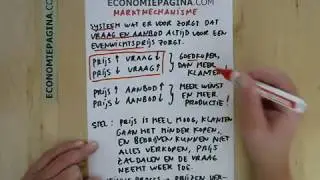 ECONOMIEPAGINA.COM
ECONOMIEPAGINA.COM
MARKTMECHANISME
SYSTEEM WAT ER VOOR ZORGT DAT
VRAAG EN AANBOD ALTIJD VOOR EEN
EVENWICHTSPRIJS ZORGT.
PRIJS ↑ VRAAG ↓ } GOEDKOPER,
PRIJS ↓ VRAAG ↑ DAN MEER KLANTEN!
PRIJS ↑ AANBOD ↑ } MEER WINST
PRIJS ↓ AANBOD ↓ EN MEER PRODUCTIE!
STEL: PRIJS IS MEEL HOOG, KLANTEN
GAAN HET MINDER KOPEN,
EN BEDRIJVEN KUNNEN NIET
ALLES VERKOPEN, PRIJS
ZAL DALEN EN DE VRAAG
NEEMT WEER TOE.